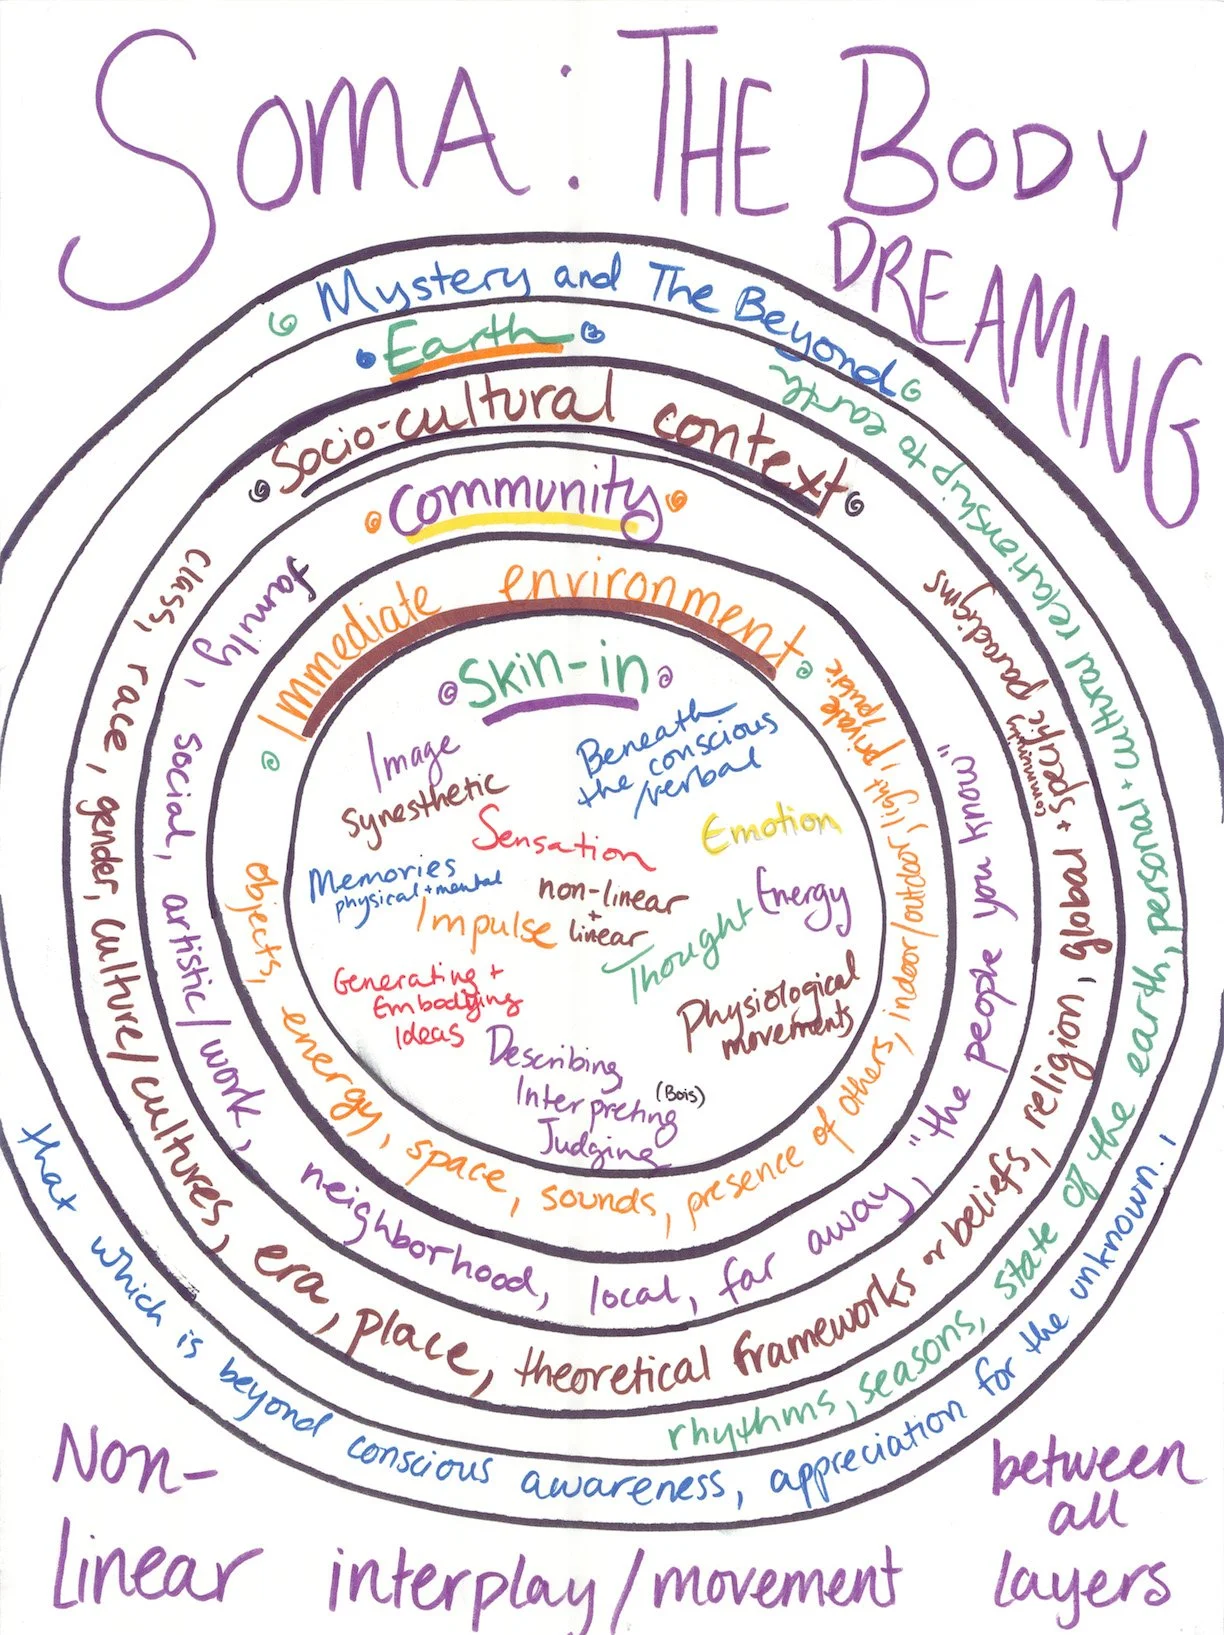 SOMA: THE BODY
DREAMING
Mystery and The Beyond
Earth
Socio-cultural context
Community
Immediate environment
Skin-in
Image
Synesthetic
Beneath
the conscious
/verbal
Sensation
Emotion
Memories
physical + mental
non-linear
+
linear
Energy
Impulse
Thought
Generating +
Embodying
Ideas
Physiological
movements
Describing
Interpreting
(Bois)
Judging
objects, energy, space, sounds, presence of others, indoor/outdoor, light, private
/public
family, social, artistic/work, neighborhood, local, far away, "the people you know"
class, race, gender, culture/cultures, era, place, theoretical frameworks or beliefs, religion, global + specific paradigms
community
rhythms, seasons, state of the earth, personal + cultural relationship to earth
that which is beyond conscious awareness, appreciation for the unknown.,
Non-
Linear interplay/movement
between
all
layers